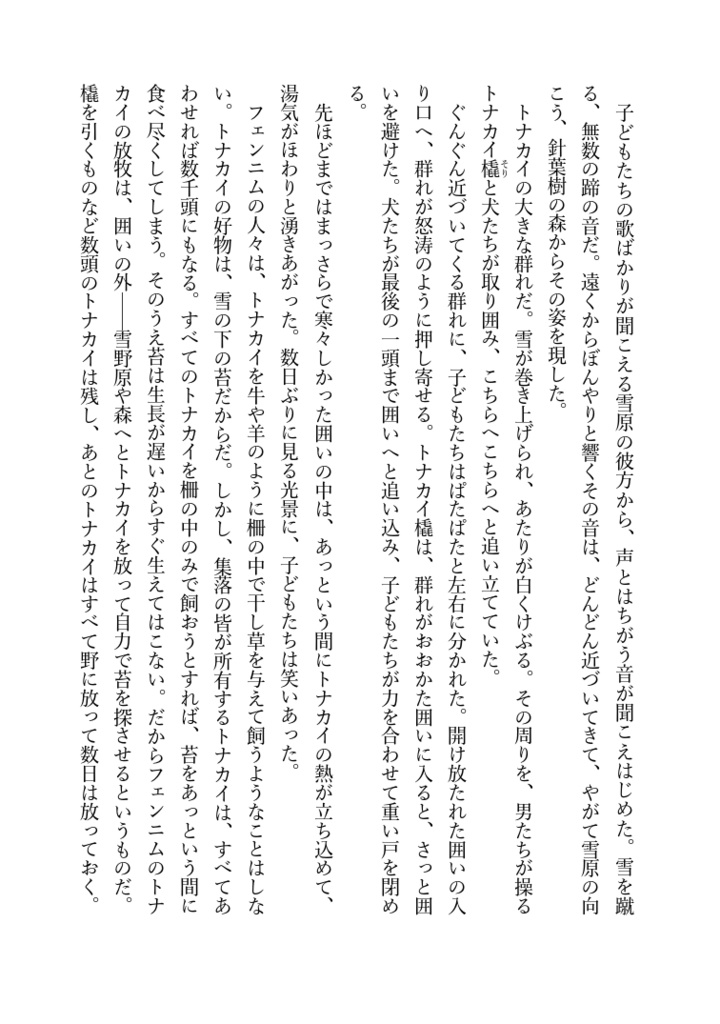 子どもたちの歌ばかりが聞こえる雪原の彼方から、声とはちがう音が聞こえはじめた。雪を蹴
る、無数の蹄の音だ。遠くからぼんやりと響くその音は、どんどん近づいてきて、やがて雪原の向
こう、針葉樹の森からその姿を現した。
　トナカイの大きな群れだ。雪が巻き上げられ、あたりが白くけぶる。その周りを、男たちが操る
トナカイ橇そりと犬たちが取り囲み、こちらへこちらへと追い立てていた。
　ぐんぐん近づいてくる群れに、子どもたちはぱたぱたと左右に分かれた。開け放たれた囲いの入
り口へ、群れが怒涛のように押し寄せる。トナカイ橇は、群れがおおかた囲いに入ると、さっと囲
いを避けた。犬たちが最後の一頭まで囲いへと追い込み、子どもたちが力を合わせて重い戸を閉め
る。
　先ほどまではまっさらで寒々しかった囲いの中は、あっという間にトナカイの熱が立ち込めて、
湯気がほわりと湧きあがった。数日ぶりに見る光景に、子どもたちは笑いあった。
　フェンニムの人々は、トナカイを牛や羊のように柵の中で干し草を与えて飼うようなことはしな
い。トナカイの好物は、雪の下の苔だからだ。しかし、集落の皆が所有するトナカイは、すべてあ
わせれば数千頭にもなる。すべてのトナカイを柵の中のみで飼おうとすれば、苔をあっという間に
食べ尽くしてしまう。そのうえ苔は生長が遅いからすぐ生えてはこない。だからフェンニムのトナ
カイの放牧は、囲いの外――雪野原や森へとトナカイを放って自力で苔を探させるというものだ。
橇を引くものなど数頭のトナカイは残し、あとのトナカイはすべて野に放って数日は放っておく。